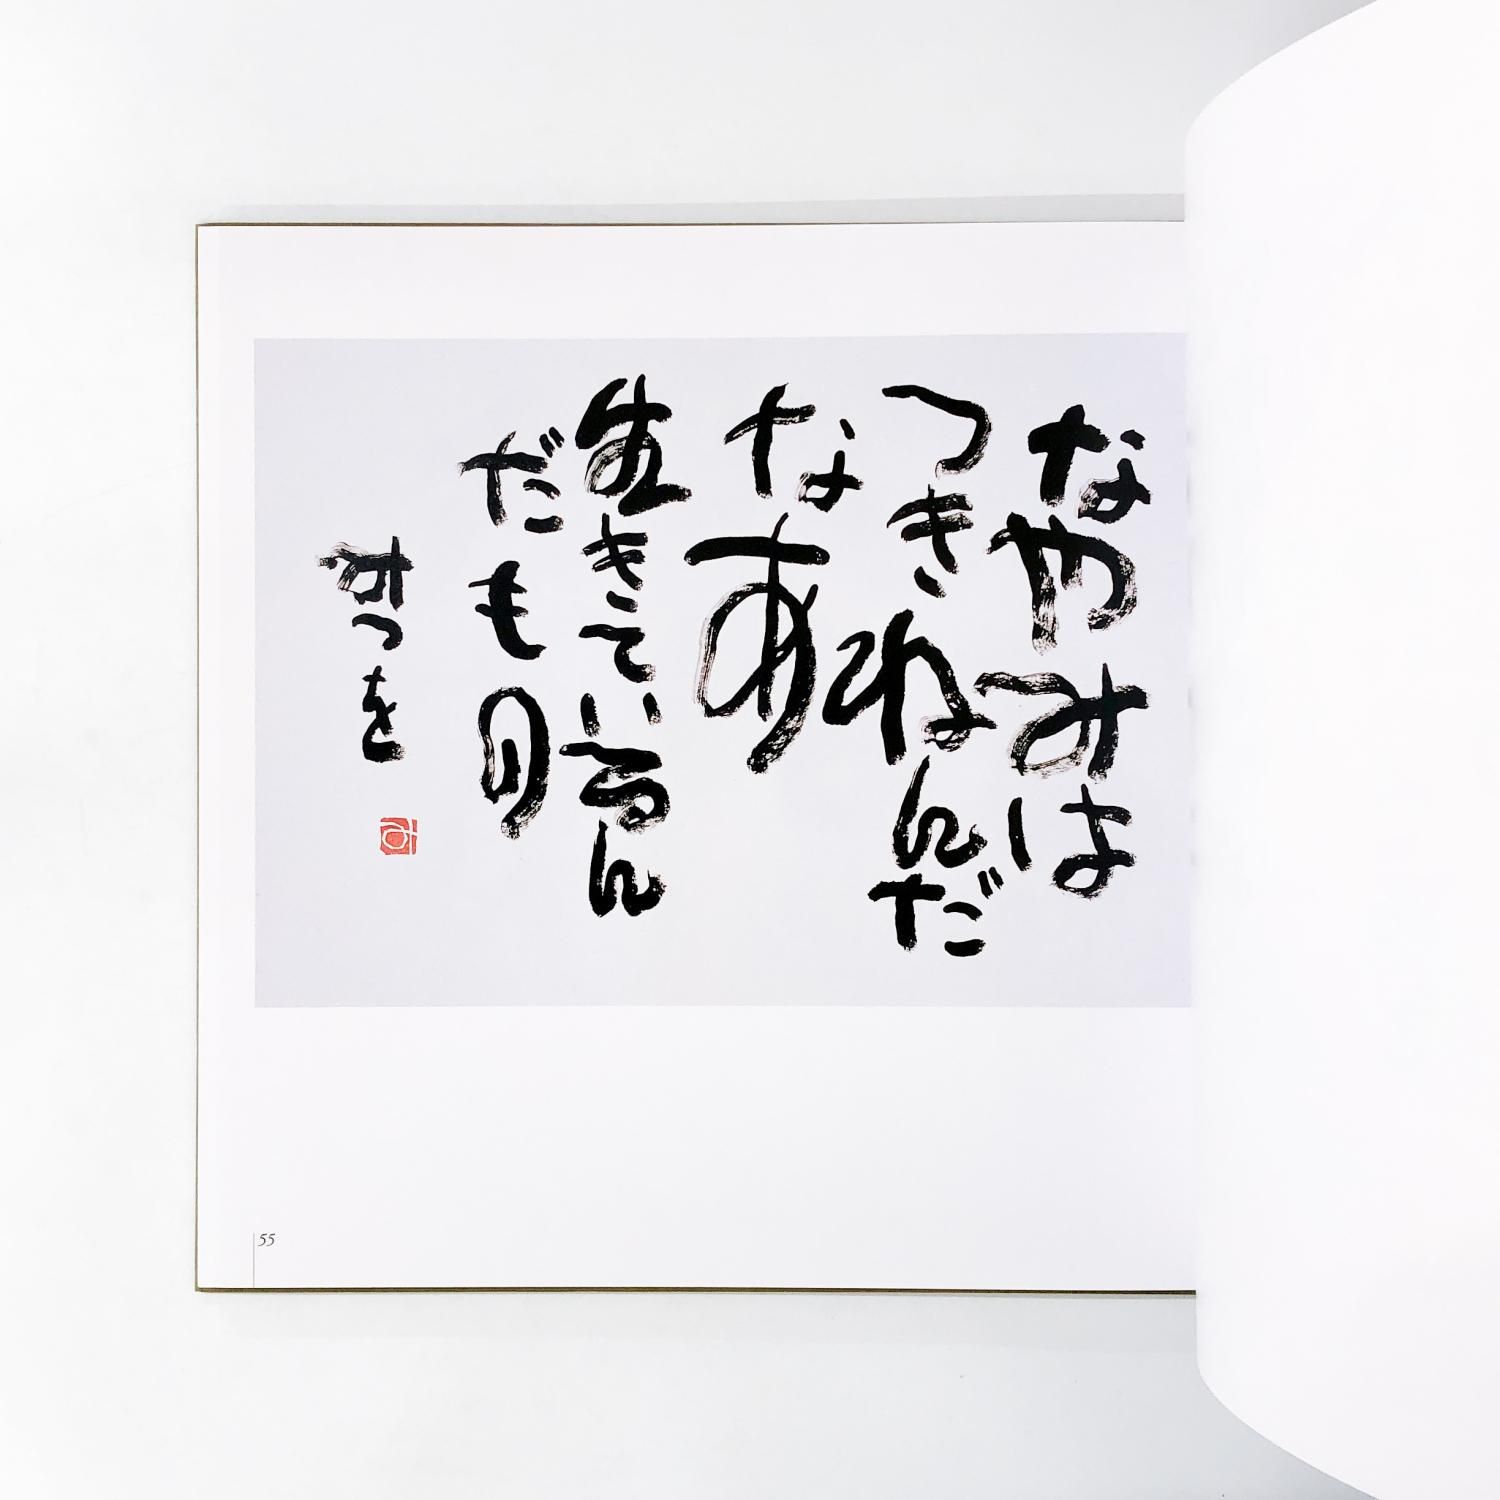 なやみは
つきねんだ
なあ
生きているん
だもの
みつを
み
55